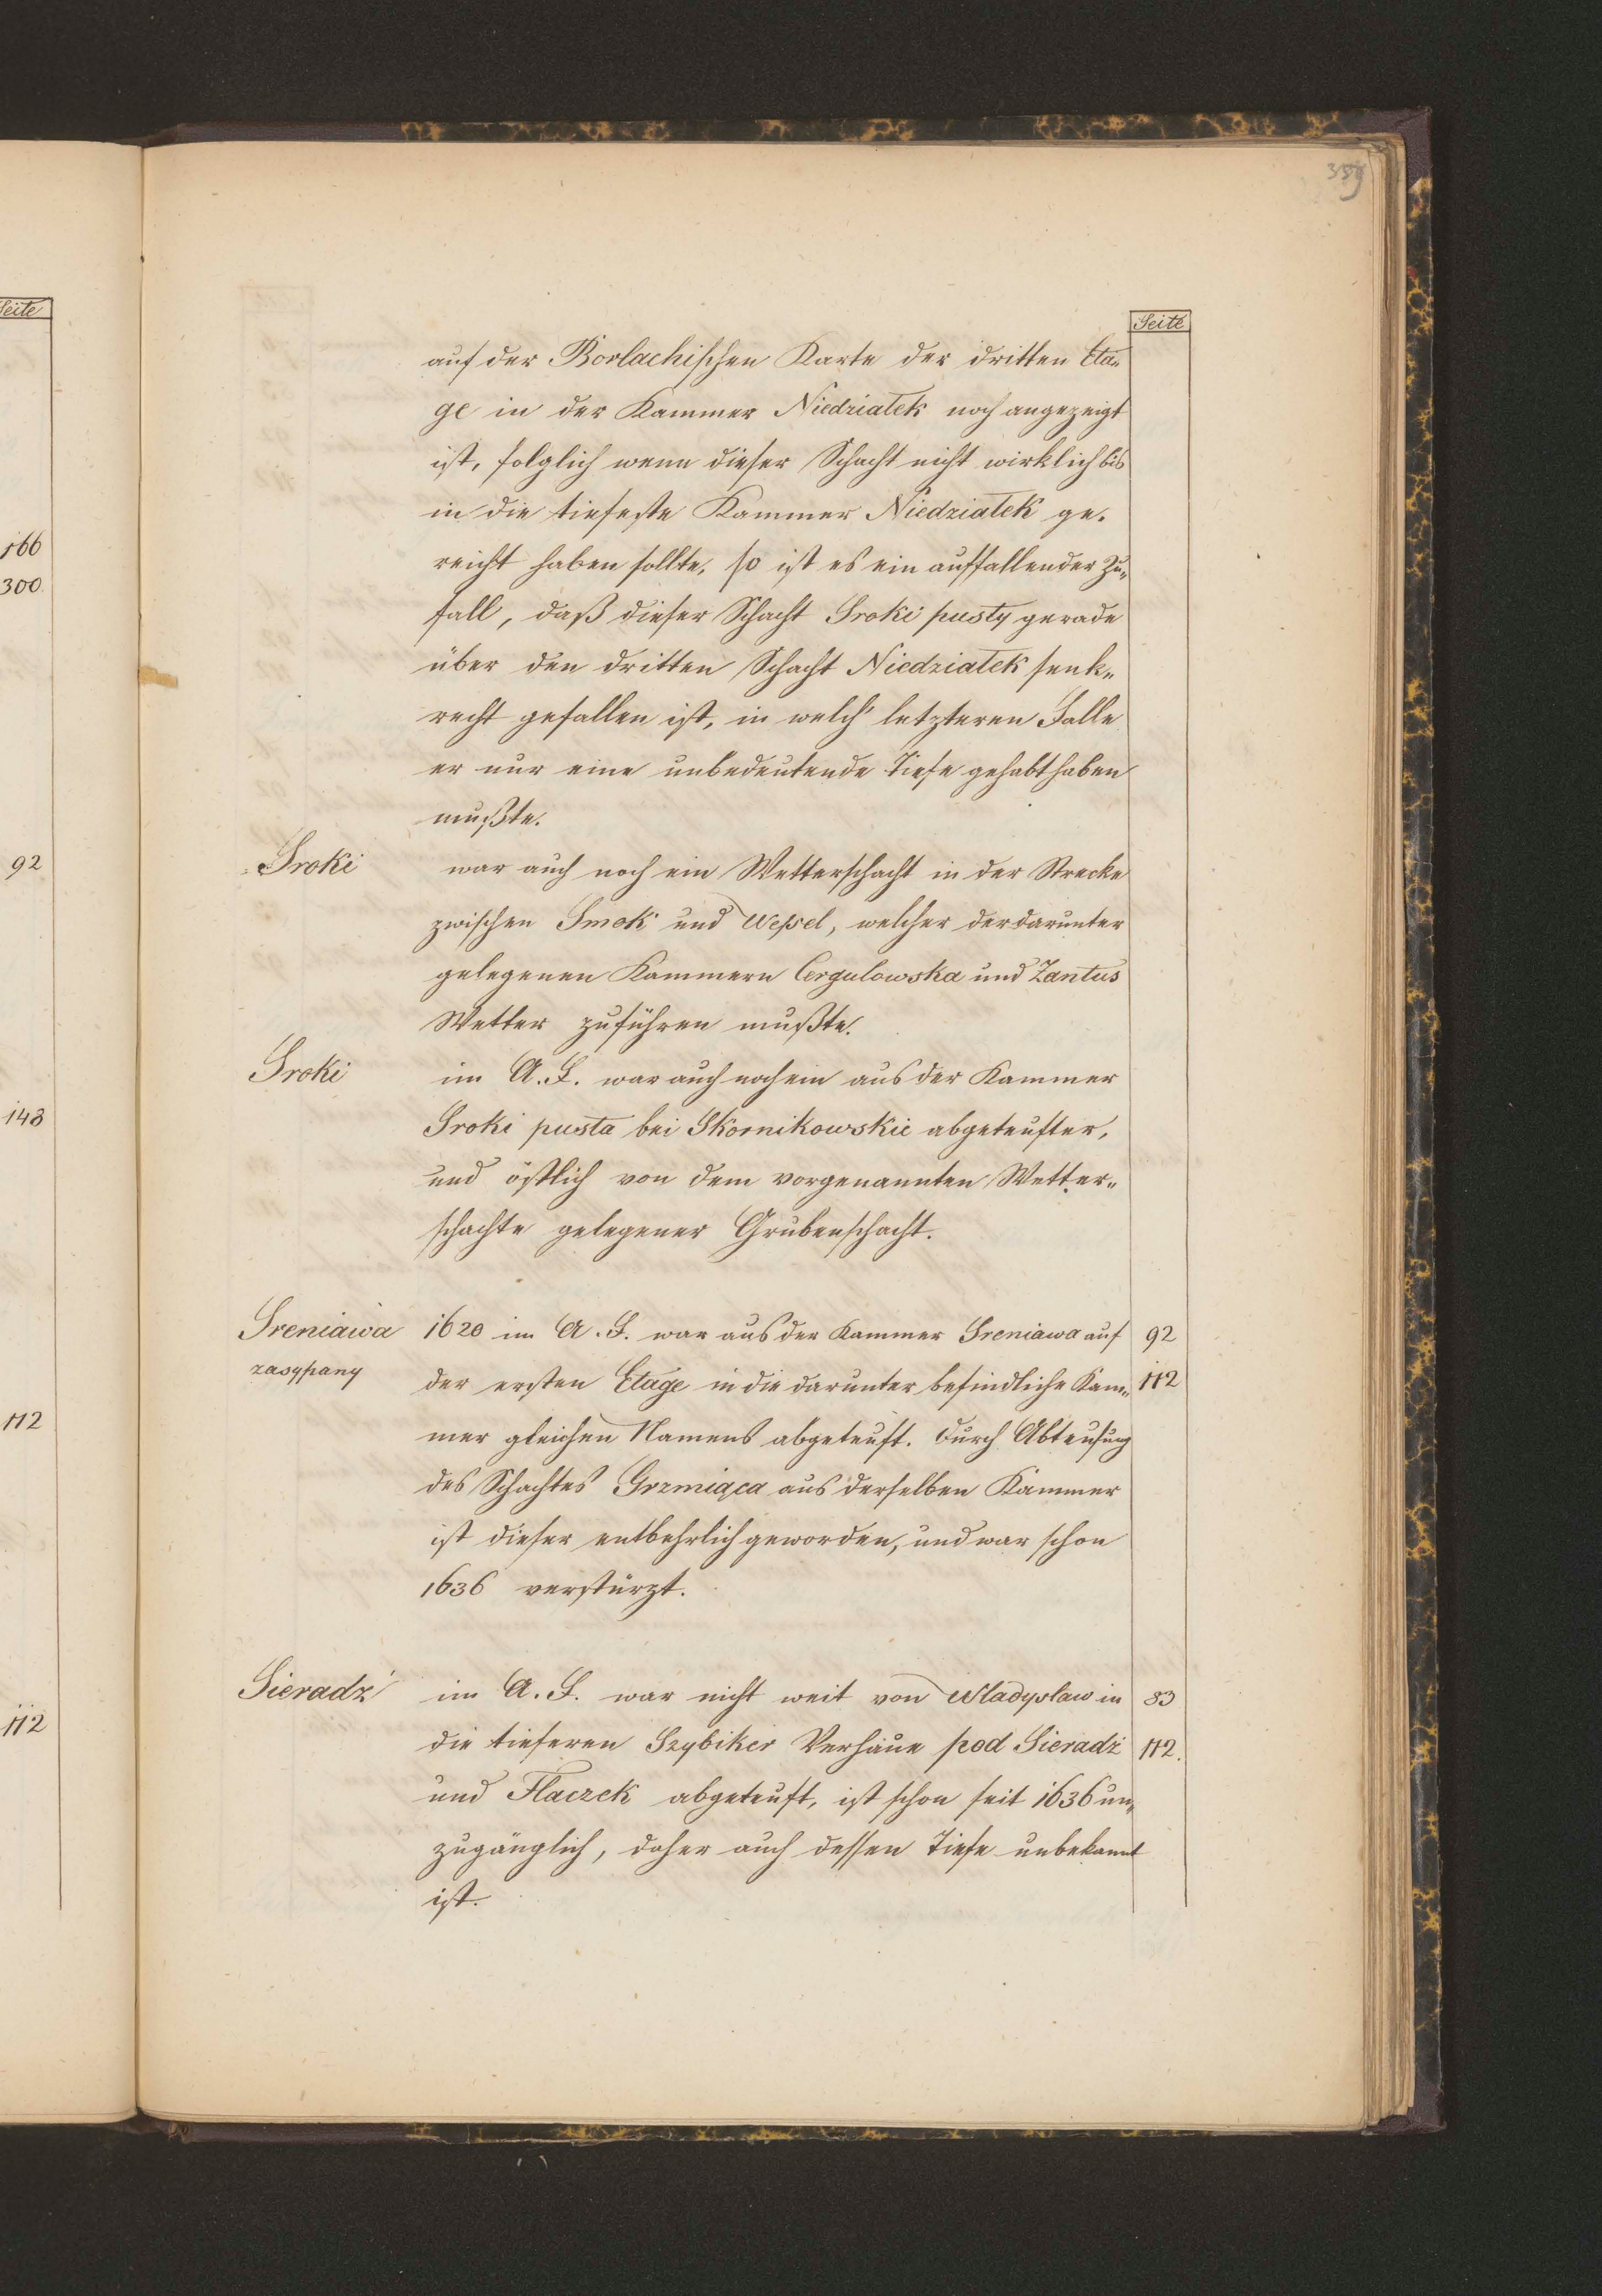 Seite
166
300.
92
143
112
112
359
Seite
auf der Borlachischen Karte der dritten Eta„
ge in der Kammer Niedziałek noch angezeigt
ist, folglich wenn dieser Schacht nicht wirklich bis
in die tiefeste Kammer Niedziałek ge„
reicht haben sollte, so ist es ein auffallender Zu„
fall, daß dieser Schacht Sroki pusty gerade
über den dritten Schacht Niedziałek senk„
recht gefallen ist, in welch' letzteren Falle
er nur eine unbedeutende Tiefe gehabt haben
mußte.
Sroki war auch noch ein Wetterschacht in der Strecke
zwischen Smok und Wessel, welcher der darunter
gelegenen Kammern Cergulowska und Zantus
Wetter zuführen mußte.
Sroki im A. F. war auch noch ein aus der Kammer
Sroki pusta bei Skornikowskie abgeteufter,
und östlich von dem vorgenannten Wetter„
schachte gelegener Grubenschacht.
Sreniawa 1620 im A. F. war aus der Kammer Sreniawa auf 92
zasypany der ersten Etage in die darunter befindliche Kam„ 112
mer gleichen Namens abgeteuft. Durch Abteufung
des Schachtes Grzmiąca aus derselben Kammer
ist dieser entbehrlich geworden, und war schon
1636 verstürzt.
Sieradź im A. F. war nicht weit von Wladyslaw in 83
die tieferen Szybiker Verhaue pod Sieradź 112.
und Flaczek abgeteuft, ist schon seit 1636 un„
zugänglich, daher auch dessen Tiefe unbekannt
ist.